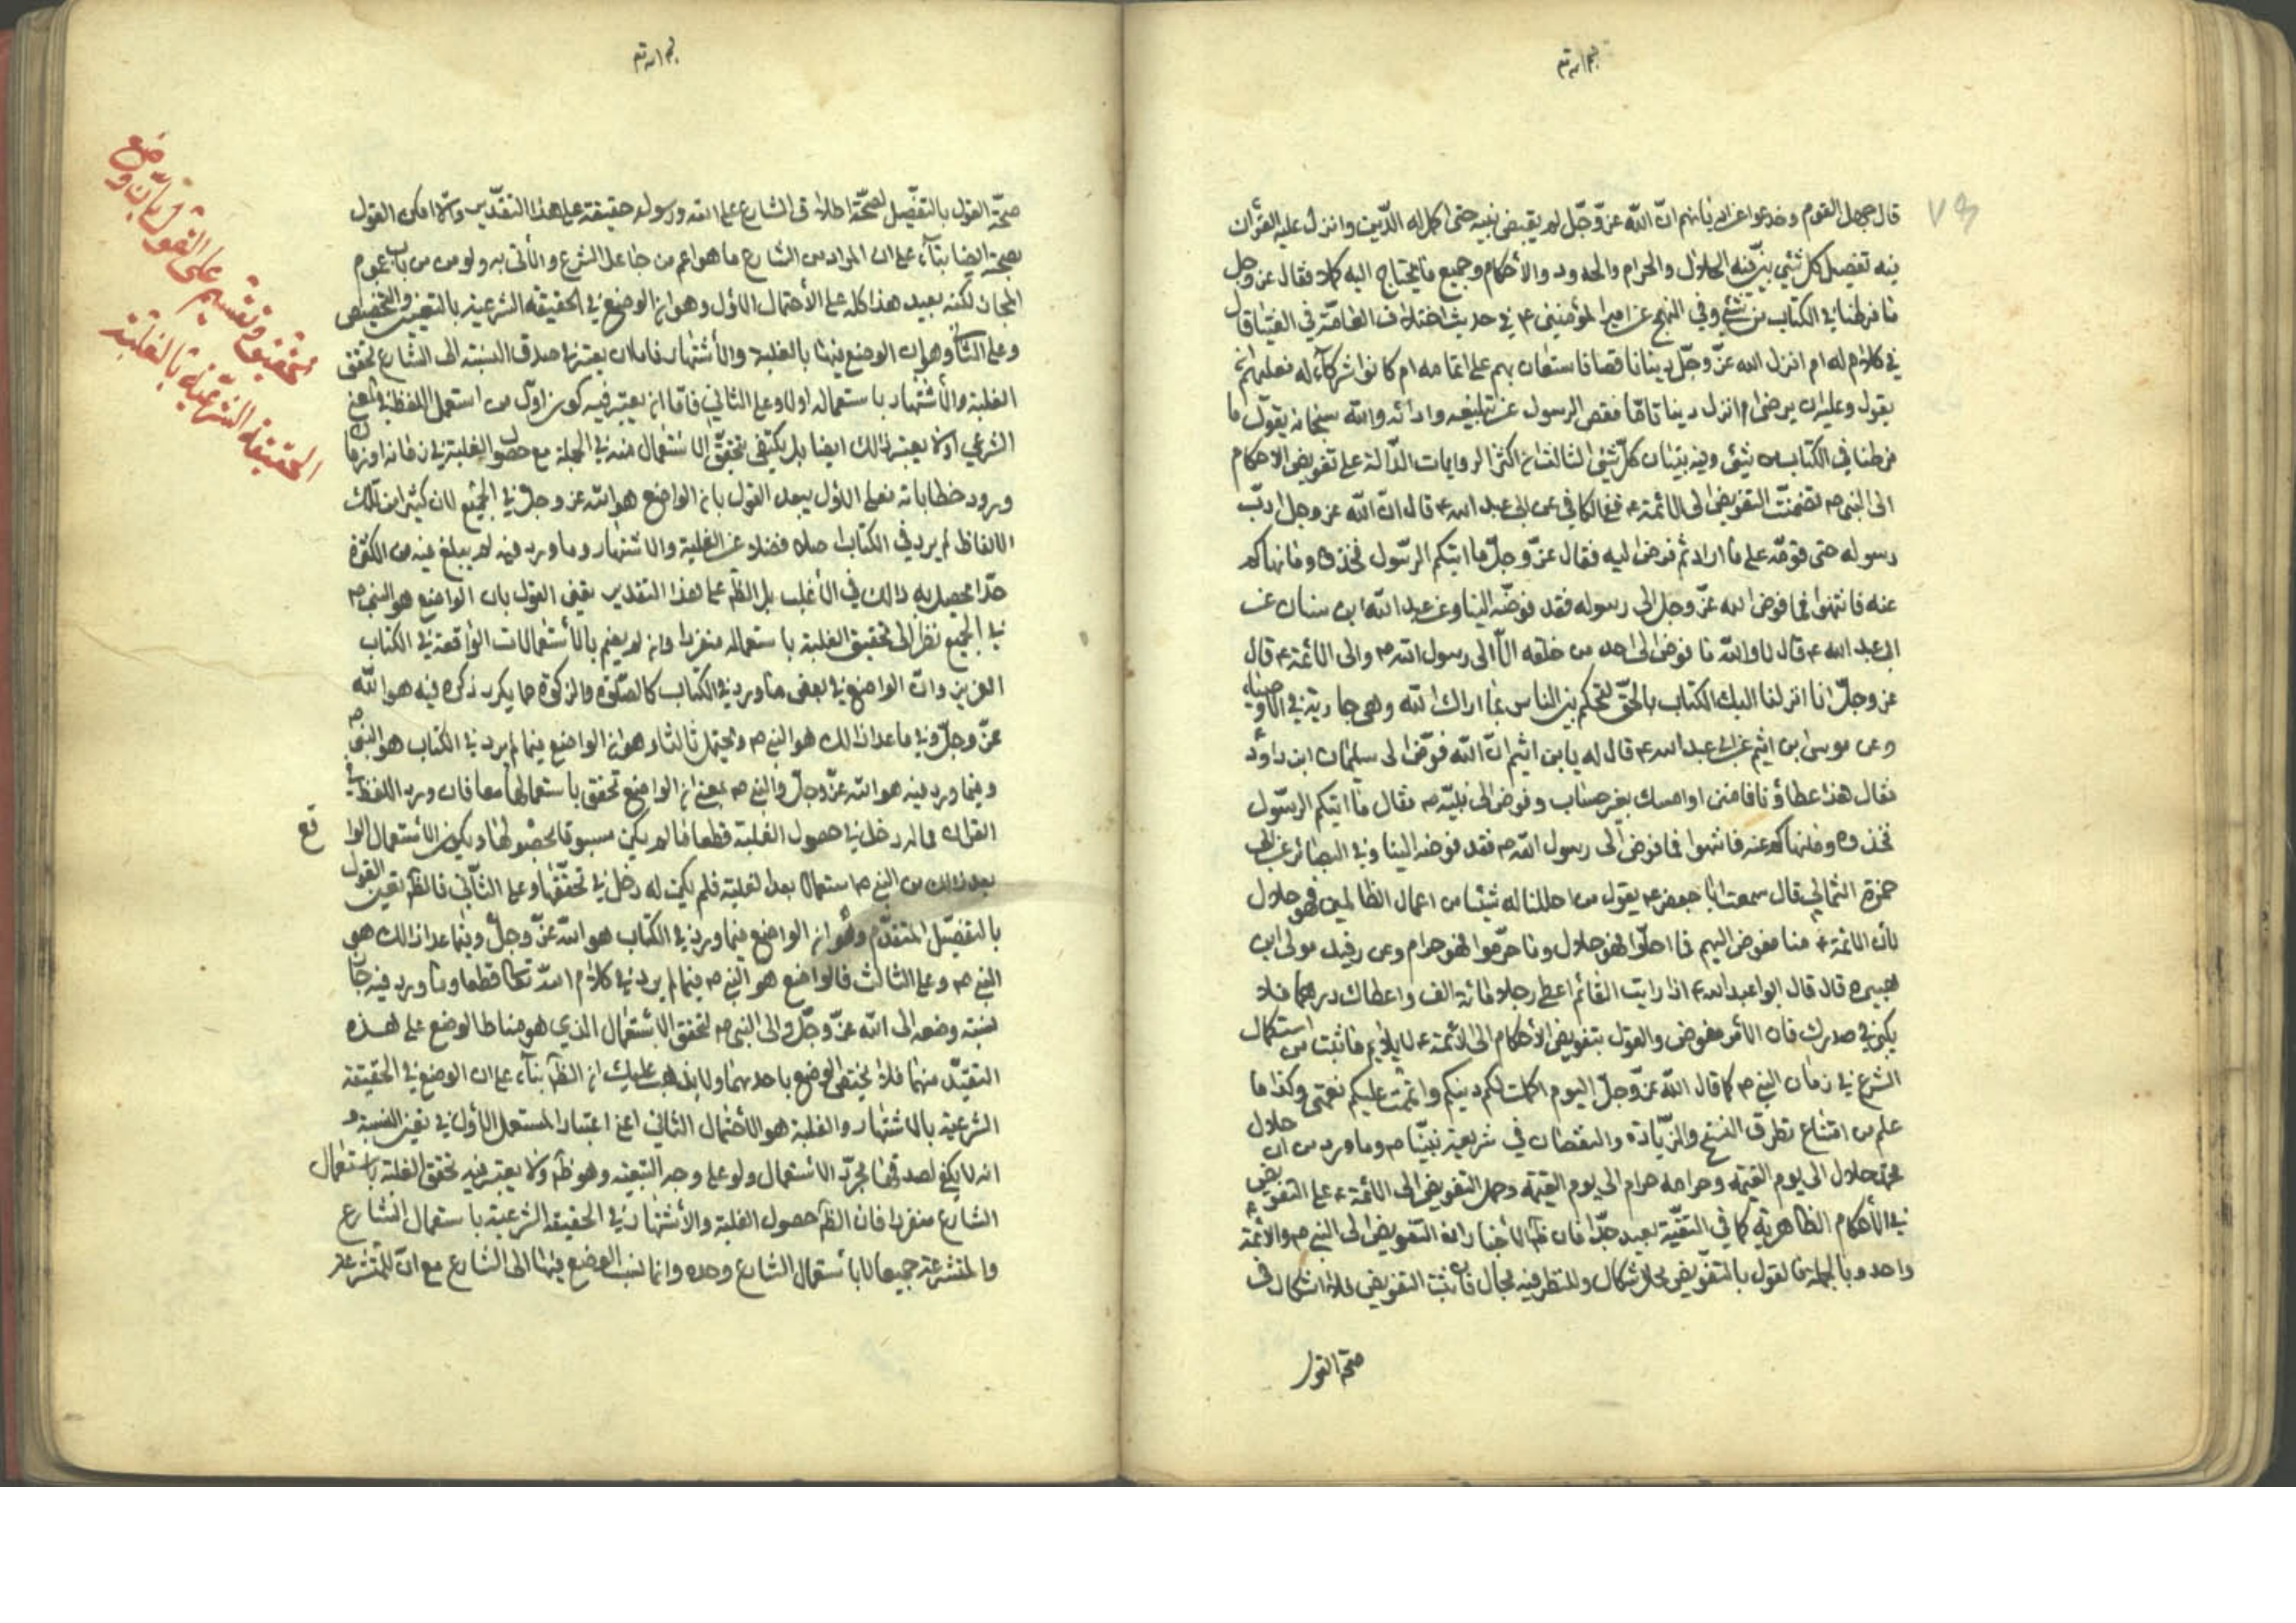 بم الله تع
قال جهل القوم وخدعوا عن اديانهم ان الله عز وجل لم يقبض نبيه حتى اكمل له الدين وانزل عليه القرآن
فيه تفصيل كل شئ بين فيه الحلال والحرام والحدود والأحكام وجميع ما يحتاج اليه كملا فقال عز وجل
ما فرطنا في الكتاب من شئ وفي النهج عن امير المؤمنين ع في حديث اختلاف العامة في الفتيا قال
في كلام له ام انزل الله عز وجل دينا ناقصا فاستعان بهم على اتمامه ام كانوا شركآء له فعليهم ان
يقول وعليه ان يرضى ام انزل دينا تاما فقصر الرسول عن تبليغه وادائه والله سبحانه يقول ما
فرطنا في الكتاب من شئ وفيه تبيان كل شئ الثالث ان اكثر الروايات الدالة على تفويض الاحكام
الى النبي ص تضمنت التفويض الى الائمة ع ففي الكافي عن ابي عبد الله ع قال ان الله عز وجل ادب
رسوله حتى قومه على ما اراد ثم فوض اليه فقال عز وجل ما اتيكم الرسول فخذوه وما نهاكم
عنه فانتهوا فما فوض الله عز وجل الى رسوله فقد فوضه الينا وعن عبد الله ابن سنان عن
ابي عبد الله ع قال لا والله ما فوض الى احد من خلقه الا الى رسول الله ص والى الائمة ع قال
عز وجل انا انزلنا اليك الكتاب بالحق لتحكم بين الناس بما اراك الله وهي جارية في الأوصياء
وعن موسى ابن اشيم عن ابي عبد الله ع قال له يا بن اشيم ان الله فوض الى سليمان ابن داود
فقال هذا عطاؤنا فامنن او امسك بغير حساب وفوض الى نبيه ص فقال ما اتيكم الرسول
فخذوه وما نهاكم عنه فانتهوا فما فوض الى رسول الله ص فقد فوضه الينا وفي البصائر عن ابي
حمزة الثمالي قال سمعت ابا جعفر ع يقول من احللنا له شيئا من اعمال الظالمين فهو حلال
لأن الائمة ع منا مفوض اليهم فما احلوا فهو حلال وما حرموا فهو حرام وعن رفيد مولى ابن
هبيرة قال قال ابو عبد الله ع اذا رايت القائم اعطى رجلا مائة الف واعطاك درهما فلا
يكبر في صدرك فان الأمر مفوض والقول بتفويض الأحكام الى الائمة ع لا يلايم ما ثبت من استكمال
الشرع في زمان النبي ص كما قال الله عز وجل اليوم اكملت لكم دينكم واتممت عليكم نعمتي وكذا ما
علم من امتناع تطرق النسخ والزيادة والنقصان في شريعة نبينا ص وما ورد من ان حلال
محمد حلال الى يوم القيمة وحرامه حرام الى يوم القيمة وحمل التفويض الى الائمة ع على التفويض
في الأحكام الظاهرية كما في التقية بعيد جدا فان ظ الأخبار ان التفويض الى النبي ص والائمة ع
واحد وبالجملة فالقول بالتفويض محل اشكال وللنظر فيه مجال فان ثبت التفويض فلا اشكال في
صحة القول
بم الله تع
صحة القول بالتفصيل لصحة اطلاق الشارع على الله ورسوله حقيقة على هذا التقدير والا امكن القول
بصحته ايضا بنآء على ان المراد من الشارع ما هو اعم من جاعل الشرع والأتي به ولو من من باب عموم
المجاز لكنه بعيد هذا كله على الأحتمال الاول وهو ان الوضع في الحقيقة الشرعية بالتعيين والتخصيص
وعلى الثاني وهو ان الوضع فيها بالغلبة والأشتهار فاما ان يعتبر في صدق النسبة الى الشارع تحقق
الغلبة والأشتهار باستعماله اولا وعلى الثاني فاما ان يعتبر فيه كونه اول من استعمل اللفظ في المعنى
الشرعي اولا يعتبر ذلك ايضا بل يكتفى بتحقق الاستعمال منه في الجملة مع حصول الغلبة في زمانه او زمان
ورود خطاباته فعلى الاول يبعد القول بان الواضع هو الله عز وجل في الجميع لان كثيرا من تلك
الالفاظ لم يرد في الكتاب اصلا فضلا عن الغلبة والاشتهار وما ورد فيه لم يبلغ فيه من الكثرة
حدا يحصل به ذلك في الأغلب بل الظ على هذا التقدير تعين القول بان الواضع هو النبي ص
في الجميع نظرا الى تحقيق الغلبة باستعماله منفردا وان لم يضم بالأستعمالات الواقعة في الكتاب
العزيز وان الواضع في بعض ما ورد في الكتاب كالصلوة والزكوة مما يكرر ذكره فيه هو الله
عز وجل وفي ما عدا ذلك هو النبي ص ويحتمل ثالثا وهو ان الواضع فيما لم يرد في الكتاب هو النبي ص
وفيما ورد فيه هو الله عز وجل والنبي ص بمعنى ان الواضع تحقق باستعمالهما معا فان ورد اللفظ في
القران مما له دخل في حصول الغلبة قطعا فما لم يكن مسبوقا بحصولها ويكون الأستعمال الواقع
بعد ذلك من النبي ص استعمالا بعد الغلبة فلم يكن له دخل في تحققها وعلى الثاني فالظ تعين القول
بالتفصيل المتقدم وهو ان الواضع فيما ورد في الكتاب هو الله عز وجل وفيما عدا ذلك هو
النبي ص وعلى الثالث فالواضع هو النبي ص فيما لم يرد في كلام الله تعالى قطعا وما ورد فيه جاز
نسبة وضعه الى الله عز وجل والى النبي ص لتحقق الأستعمال الذي هو مناط الوضع على هذه
التقدير منهما فلا يختص الوضع باحدهما ولا يذهب عليك ان الظ بنآء على ان الوضع في الحقيقة
الشرعية بالاشتهار والغلبة هو الأحتمال الثاني اعني اعتبار المستعمل الأول في تعين النسبة
انه لا يكفي لصدقها مجرد الاستعمال ولو على وجه التبعية وهو ظ ولا يعتبر فيه تحقق الغلبة باستعمال
الشارع منفردا فان الظ حصول الغلبة والأشتهار في الحقيقة الشرعية باستعمال الشارع
والمتشرعة جميعا لا بأستعمال الشارع وحده وانما نسب الوضع فيها الى الشارع مع ان للمتشرعة
تحقيق وتقسيم على القول بان وضع
الحقيقة الشرعية بالغلبة